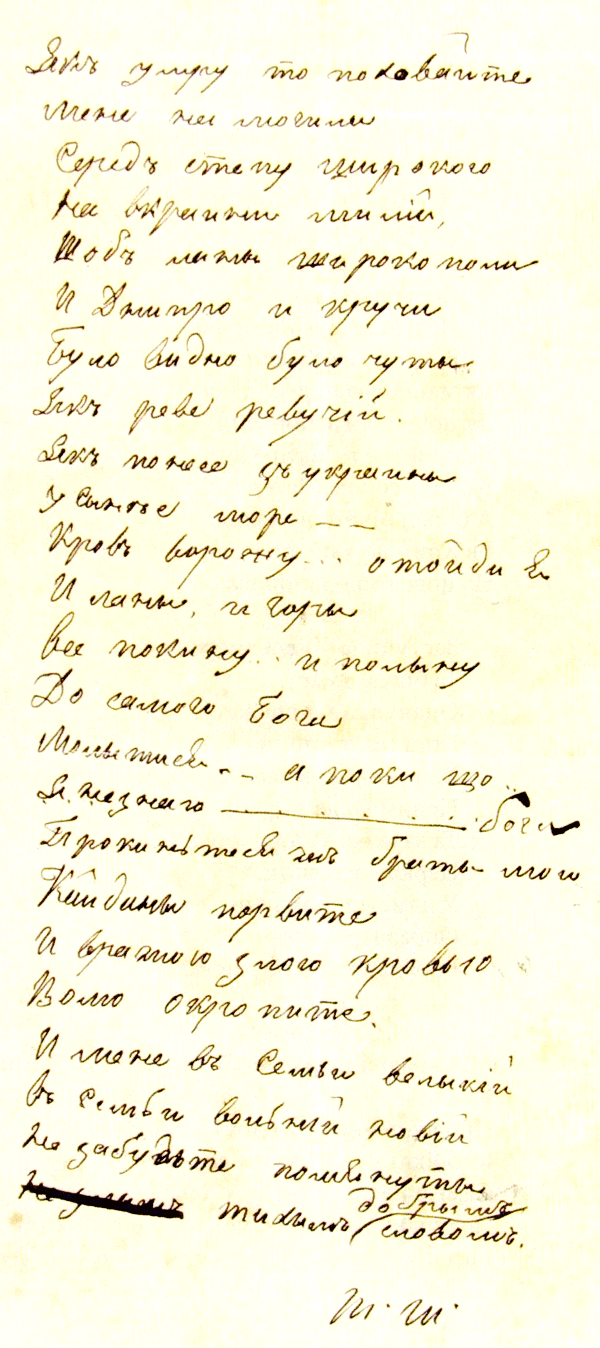 Якъ умру то поховайте
Мене на могили
Середъ степу широкого
На вкраини милій,
Щобъ ланы широкополи
И Днипро и кручи
Було видно було чуты
Якъ реве ревучій.
Якъ понесе зъ украины
У синѣе море _ _
Кровъ ворожу... отойди я
И ланы, и горы
все покину.. и полыну
До самого Бога
Молытися.. а поки що..
Я незнаю бога
Прокинѣтеся браты мои
Кайданы порвите
И вражою злою кровъю
Волю окропите.
И мене въ семьи велыкій
въ семьи вольній новій
Не забудьте помянуты
тихымъ добрымъ словомъ.
Ш. Ш.